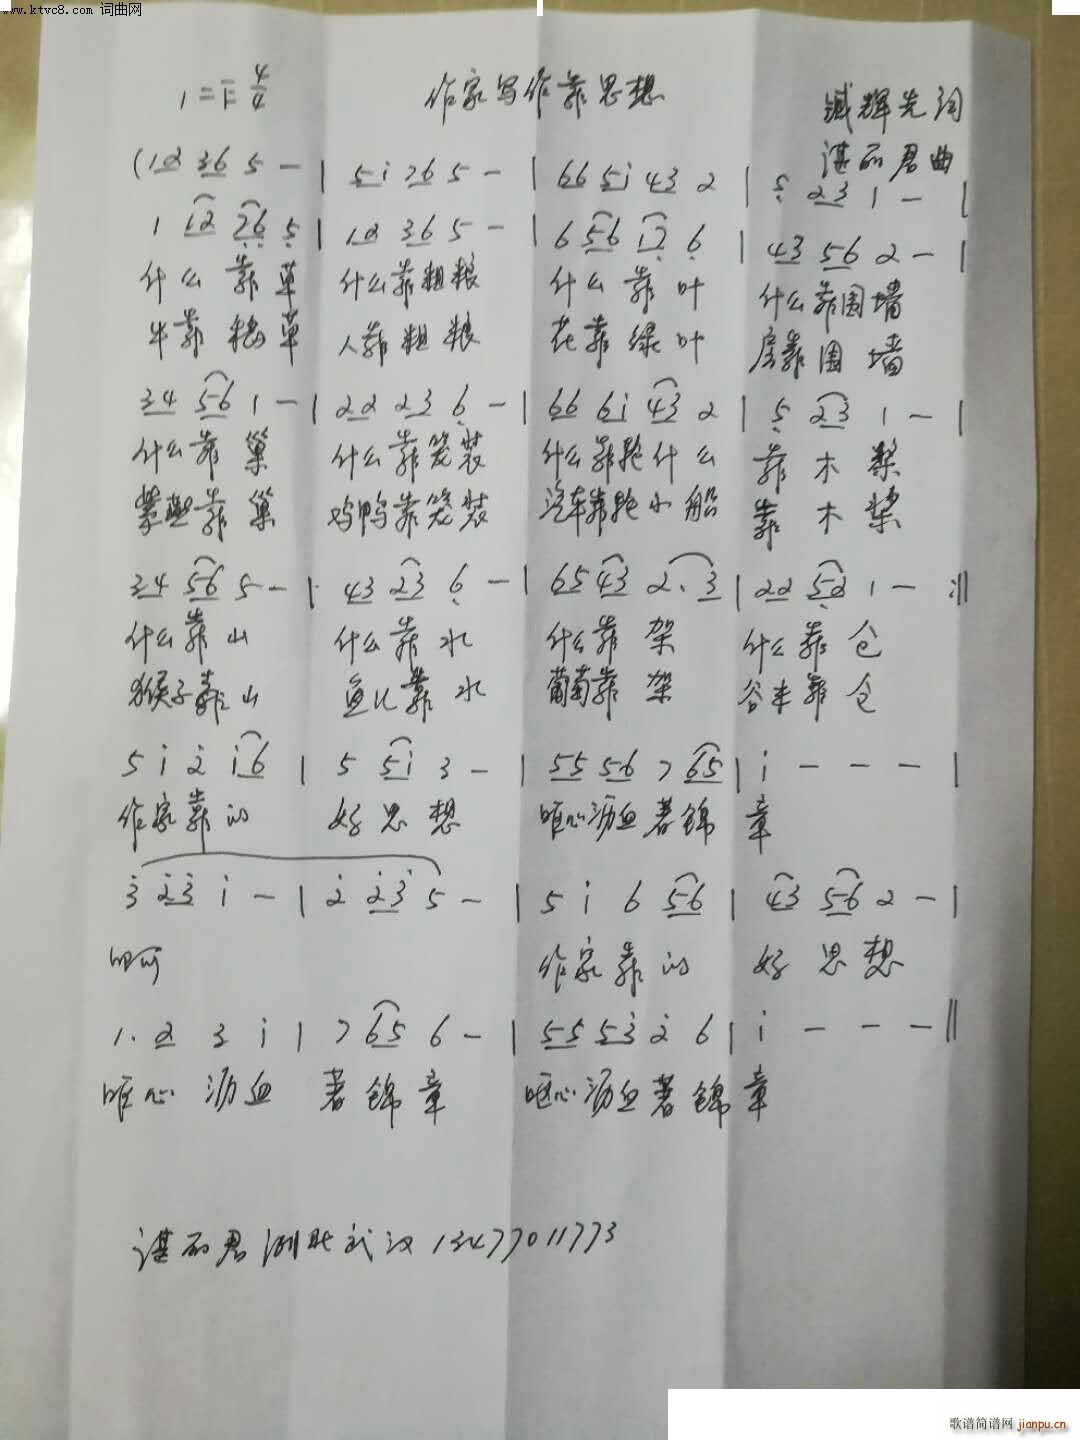 www.ktvc8.com 词曲网
1=F 4/4 作家写作靠思想 臧辉先词
谌丽君曲
(12 36 5 - | 5i 76 5 - | 66 5i 43 2 | 5 23 1 - |
1 12 76 5 | 12 36 5 - | 6 56 12 6 | 43 56 2 - |
什么靠草 什么靠粗粮 什么靠叶 什么靠围墙
牛靠粮草 人靠粗粮 花靠绿叶 房靠围墙
34 56 1 - | 22 23 6 - | 66 6i 43 2 | 5 23 1 - |
什么靠巢 什么靠笼装 什么靠轮什么 靠木桨
靠巢 鸡鸭靠笼装 汽车靠轮小船 靠木桨
34 56 5 - | 43 23 6 - | 65 43 2. 3 | 22 52 1 - :||
什么靠山 什么靠水 什么靠架 什么靠仓
猴子靠山 鱼儿靠水 葡萄靠架 谷丰靠仓
5 i 2 i6 | 5 5i 3 - | 55 56 7 65 | i - - - |
作家靠的 好思想 呕心沥血著锦章
3 23 i - | 2 23 5 - | 5 i 6 56 | 43 56 2 - |
啊 作家靠的 好思想
1. 2 3 i | 7 65 6 - | 55 53 2 6 | i - - - ||
呕心沥血 著锦章 呕心沥血著锦章
谌丽君 湖北武汉 13477011773
歌谱简谱网 jianpu.cn